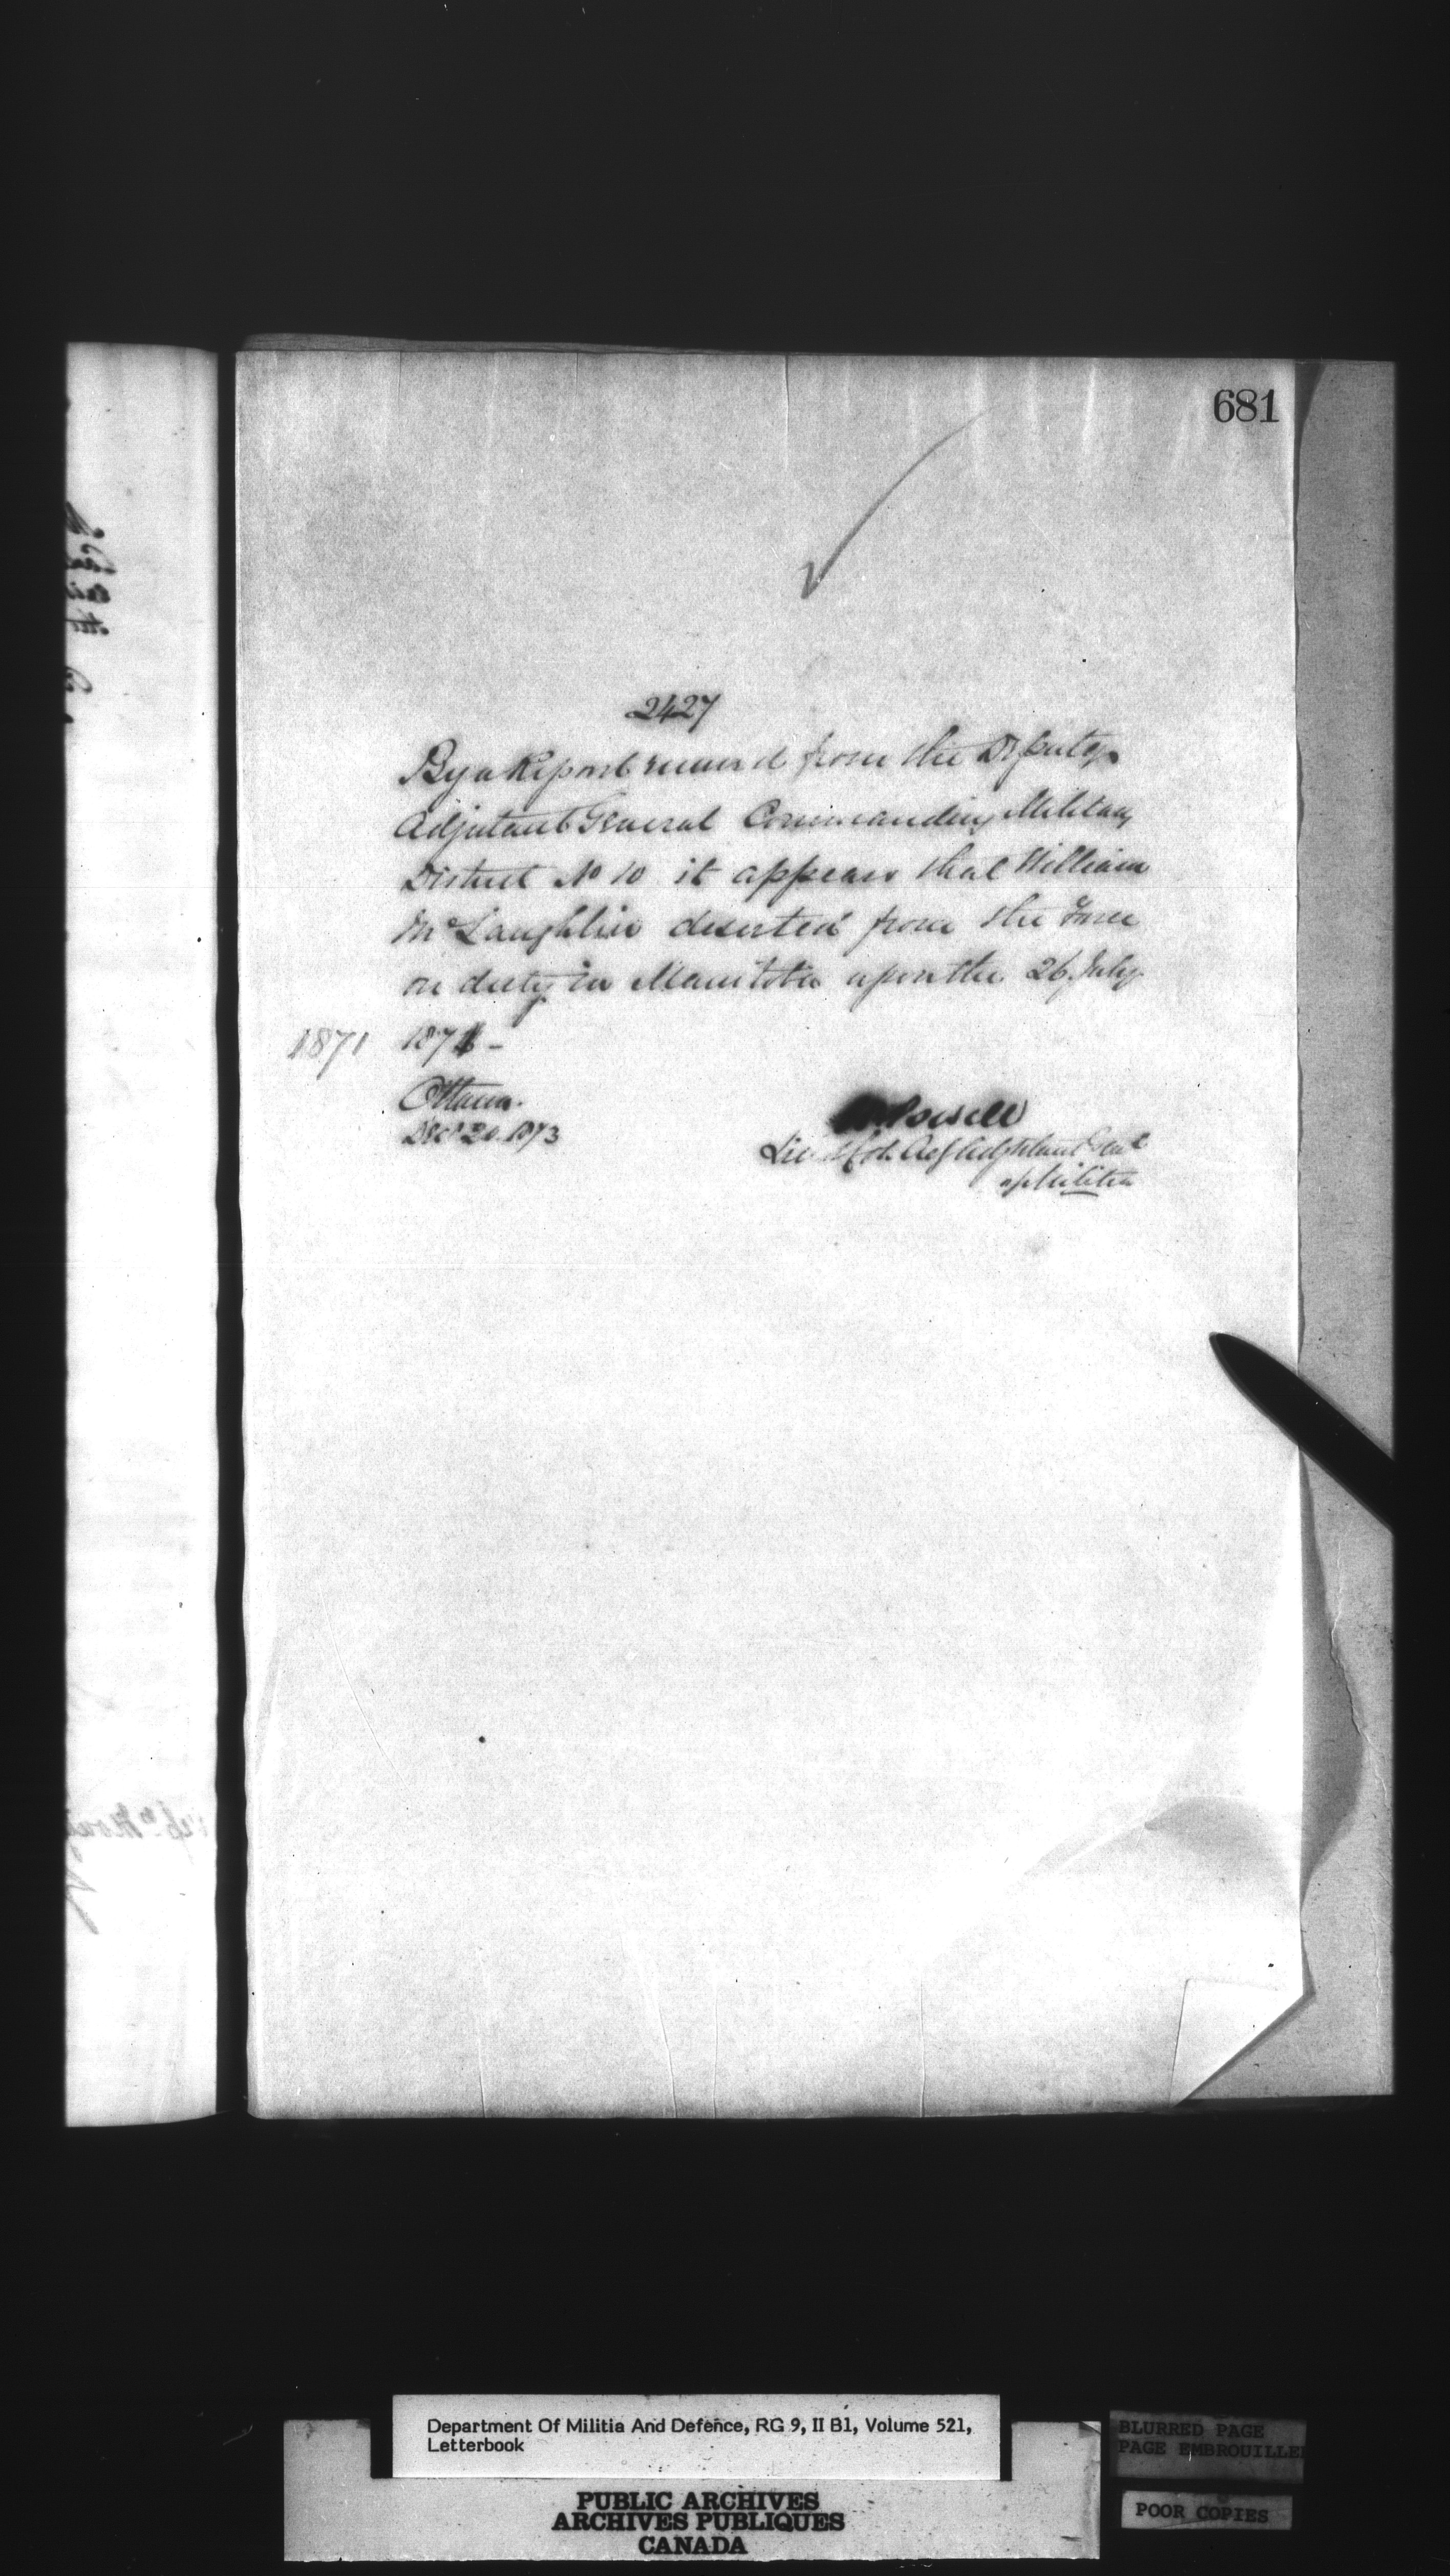 681
2427
By a Report received from the Deputy
Adjutant General Commanding Military
District No 10 it appears that William
McLaughlin deserted from the Force
on duty in Manitoba upon the 26. July
1871 1871 -
Ottawa.
Dec 20. 1873
Powell
Lieut Col. Actg Adjutant Genl
of Militia
Department Of Militia And Defence, RG 9, II B1, Volume 521,
Letterbook
PUBLIC ARCHIVES
ARCHIVES PUBLIQUES
CANADA
BLURRED PAGE
PAGE EMBROUILLE
POOR COPIES